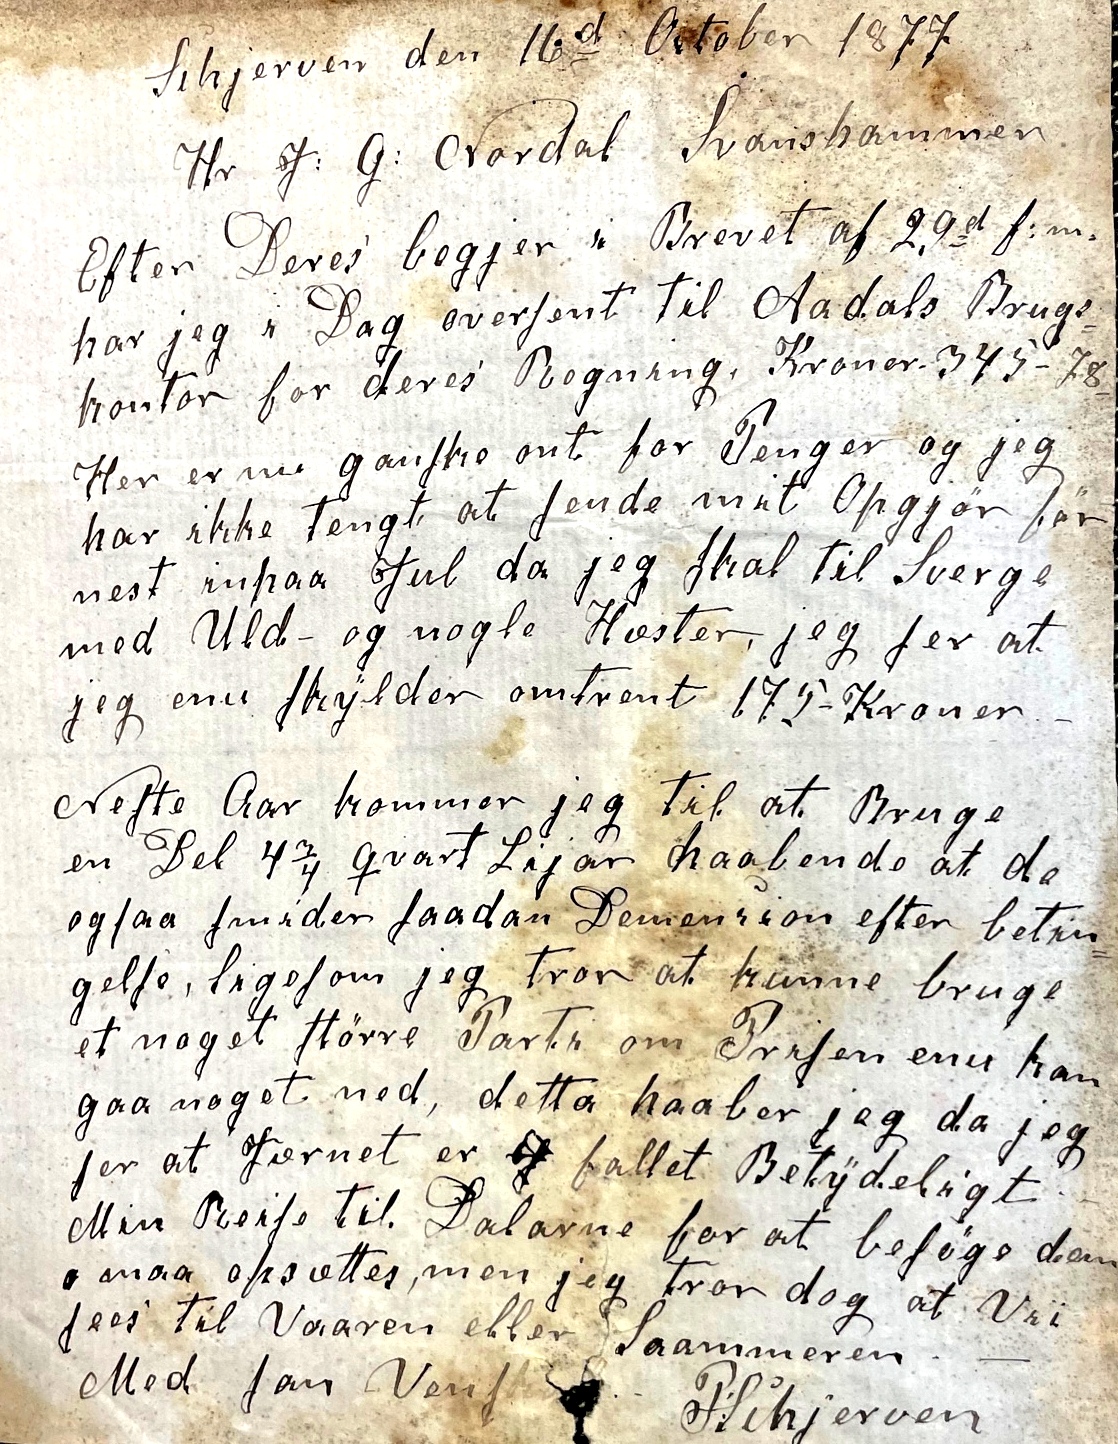 Schjerven den 16d October 1877
Hr J: G: Nordal Svanshammen
Efter Deres begjer i Brevet af 29d f: m.
har jeg i Dag oversent til Aadals Brugs-
kontor for deres Regning, Kroner 345-78
Her er nu ganske ont for Penger og jeg
har ikke tengt at sende mit Opgjör för
nest inpaa Jul da jeg skal til Sverge
med Uld- og nogle Hæster, jeg ser at
jeg enu skÿlder omtrent 175-Kroner -
Neste Aar kommer jeg til at Bruge
en Del 4 3/4 qvart Lijar haabende at de
ogsaa smider saadan Demension efter betin-
gelse, ligesom jeg tror at kunne bruge
et noget större Parti om Prisen enu kan
gaa noget ned, detta haaber jeg da jeg
ser at Jærnet er fallet Betÿdeligt -
Min Reise til Dalarne for at besöge dem
maa opsættes, men jeg tror dog at Vi
sees til Vaaren eller Saammeren -
Med san
Schjerven